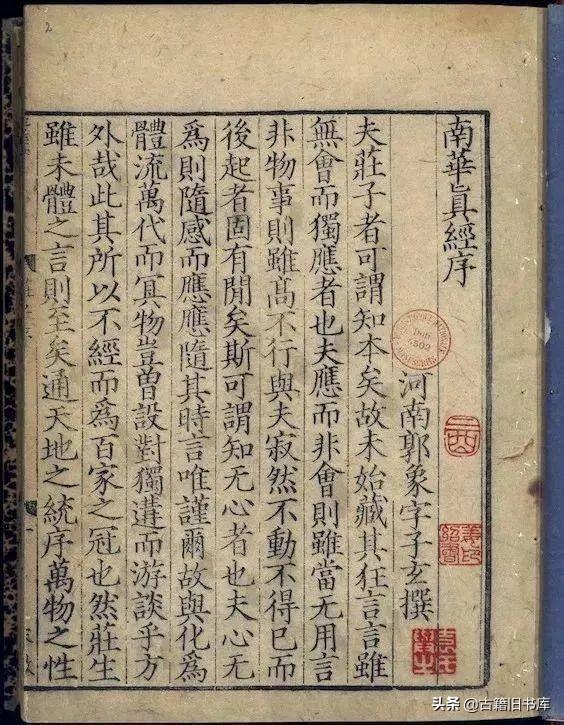 南華眞經序
河南郭象字子玄撰
夫莊子者可謂知本矣故未始藏其狂言言雖
無會而獨應者也夫應而非會則雖當无用言
非物事則雖髙不行與夫寂然不動不得已而
後起者固有閒矣斯可謂知无心者也夫心无
爲則隨感而應應隨其時言唯謹爾故與化爲
體流萬代而冥物豈曽設對獨遘而游談乎方
外哉此其所以不經而爲百家之冠也然莊生
雖未體之言則至矣通天地之統序萬物之性
2
4502
头条 @古籍旧书库